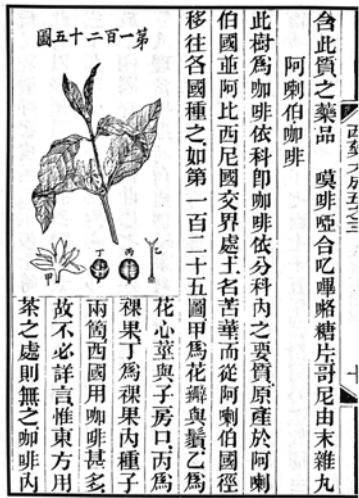 西藥大成五之三
十
含此質之藥品　嗼啡啞合叱嗶咯糖片哥尼由末雜丸
阿喇伯咖啡
此樹爲咖啡依科卽咖啡依分科內之要質原產於阿喇
伯國並阿比西尼國交界處土名苦華而從阿喇伯國徑
移往各國種之如第一百二十五圖甲爲花瓣與鬚乙爲
第一百二十五圖
乙
丙
丁
甲
花心莖與子房口丙爲
裸果丁爲裸果內種子
兩箇西國用咖啡甚多
故不必詳言惟東方用
茶之處則無之咖啡內